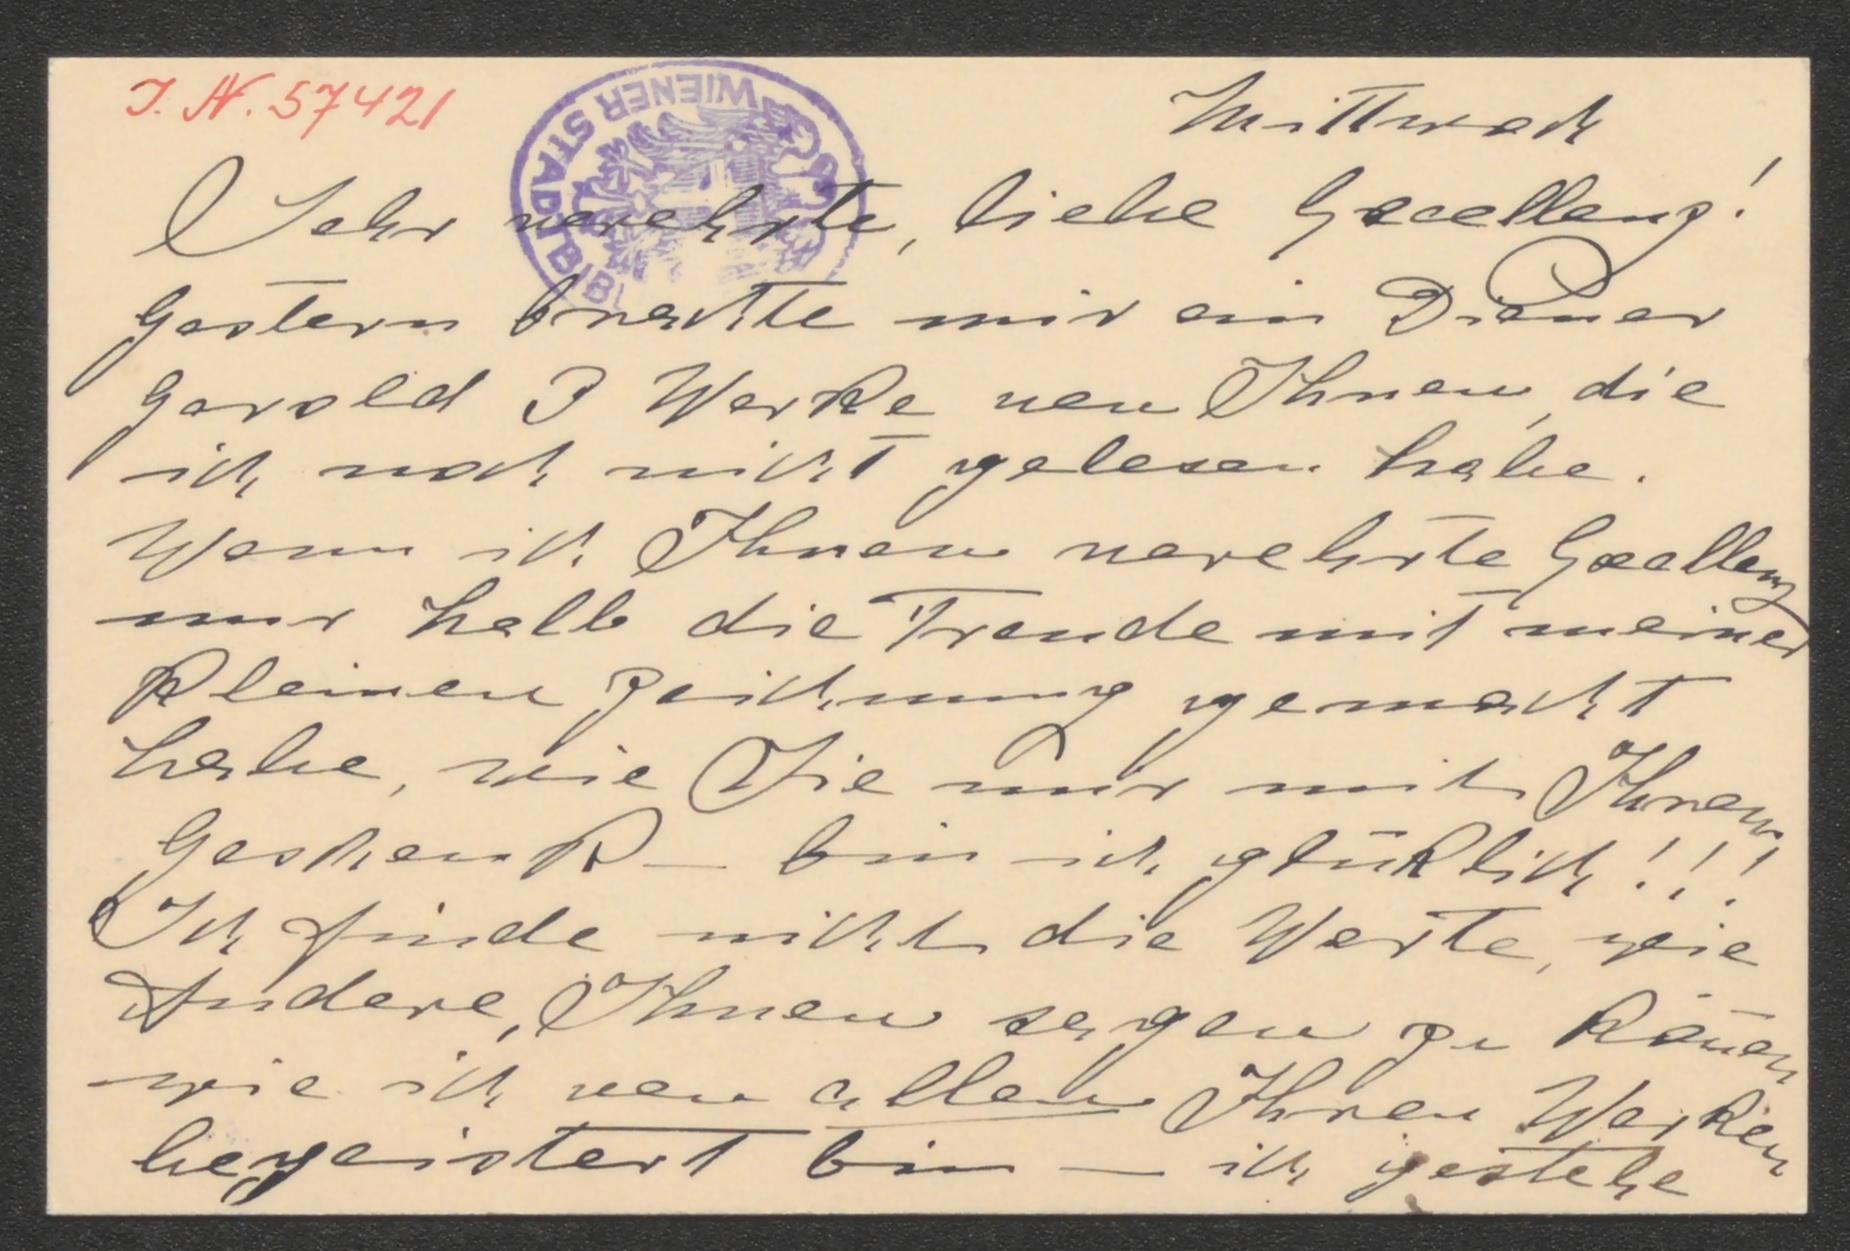 J. N. 57421
WIENER STADTBIBL
Mittwoch
Sehr verehrte, liebe Excellenz!
Gestern brachte mir ein Diener
Gerold 3 Werke von Ihnen, die
ich noch nicht gelesen habe.
Wenn ich Ihnen verehrte Excellenz
nur halb die Freude mit meiner
kleinen Zeichnung gemacht
habe, wie Sie mir mit Ihrem
Geschenk – bin ich glücklich!!!
Ich finde nicht die Worte, wie
Andere, Ihnen sagen zu könen
wie ich von allen Ihren Werken
begeistert bin – ich gestehe